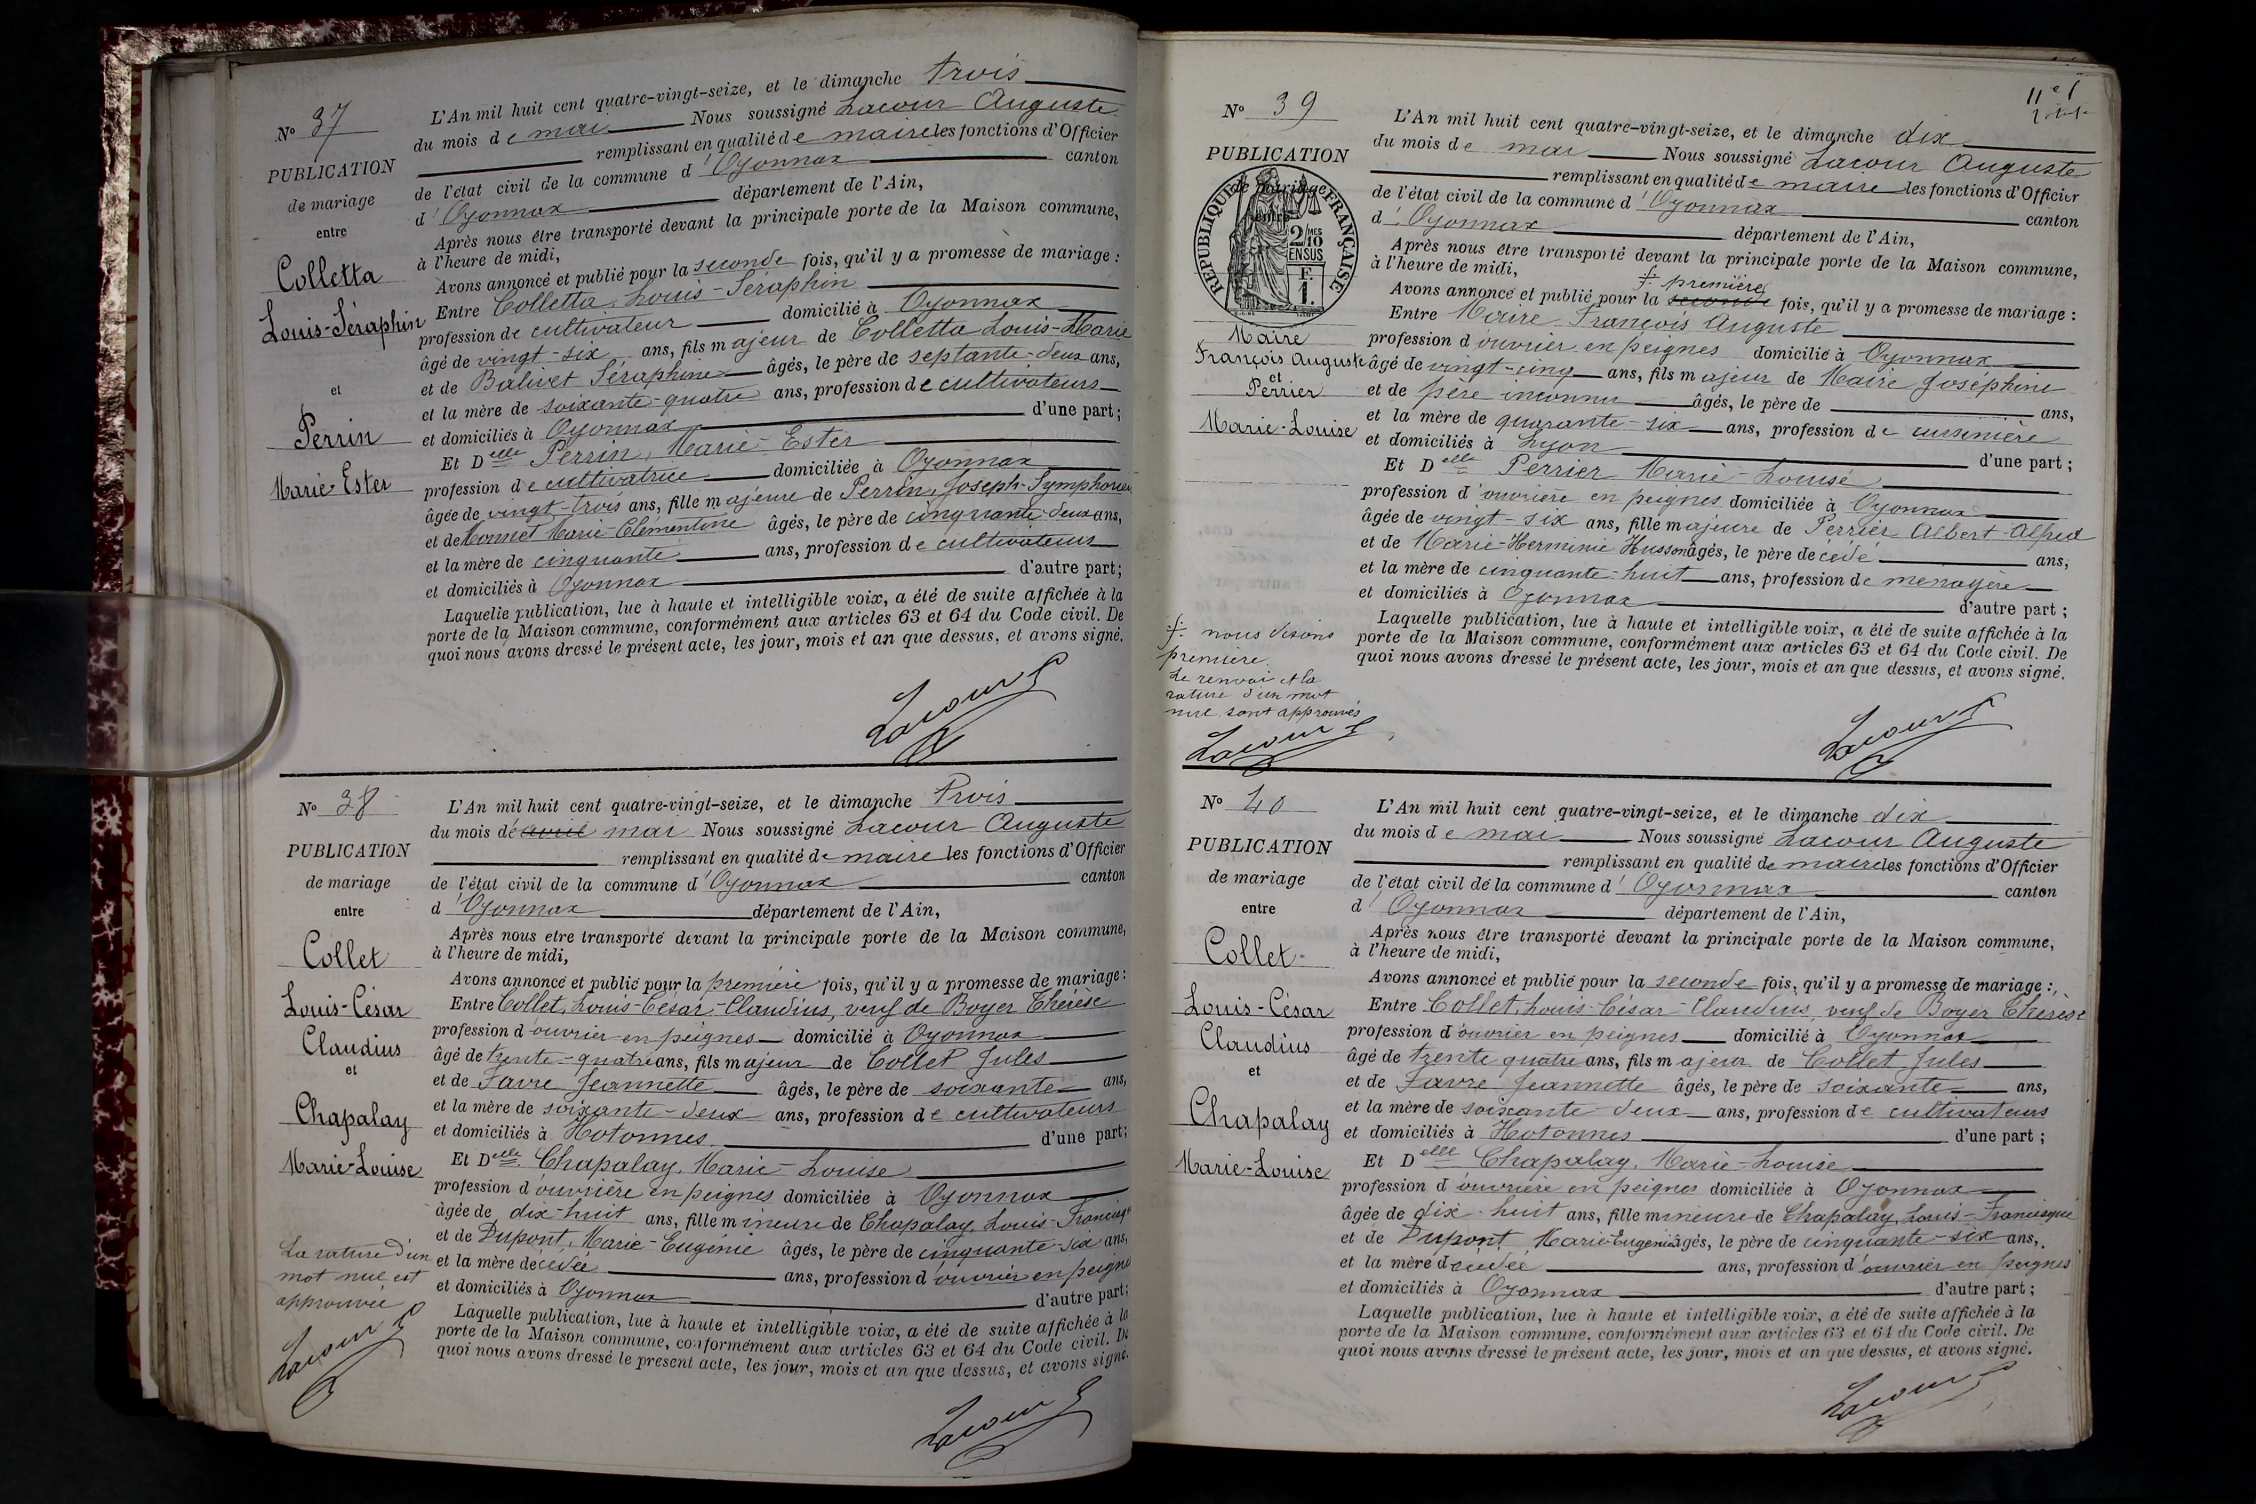 N° 37
PUBLICATION
de mariage
entre
Colletta
Louis-Séraphin
et
Perrin
Marie Ester
L'An mil huit cent quatre-vingt-seize, et le dimanche trois
du mois de mai Nous soussigné Lacour Auguste
remplissant en qualité de maire les fonctions d'Officier
de l'état civil de la commune d'Oyonnax canton
d'Oyonnax département de l'Ain,
Après nous être transporté devant la principale porte de la Maison commune,
à l'heure de midi,
Avons annoncé et publié pour la seconde fois, qu'il y a promesse de mariage :
Entre Colletta, Louis-Séraphin
profession de cultivateur domicilié à Oyonnax
âgé de vingt-six ans, fils majeur de Colletta Louis-Marie
et de Balivet Séraphine âgés, le père de septante-deux ans,
et la mère de soixante-quatre ans, profession de cultivateurs
et domiciliés à Oyonnax d'une part ;
Et Delle Perrin, Marie-Ester
profession de cultivatrice domiciliée à Oyonnax
âgée de vingt-trois ans, fille majeure de Perrin, Joseph-Symphorien
et de Marie-Clémentine âgés, le père de cinquante-deux ans,
et la mère de cinquante ans, profession de cultivateurs
et domiciliés à Oyonnax d'autre part ;
Laquelle publication, lue à haute et intelligible voix, a été de suite affichée à la
porte de la Maison commune, conformément aux articles 63 et 64 du Code civil. De
quoi nous avons dressé le présent acte, les jour, mois et an que dessus, et avons signé.
Lacour
N° 38
PUBLICATION
de mariage
entre
Collet
Louis-César
Claudius
et
Chapalay
Marie-Louise
L'An mil huit cent quatre-vingt-seize, et le dimanche Trois
du mois de avril mai Nous soussigné Lacour Auguste
remplissant en qualité de maire les fonctions d'Officier
de l'état civil de la commune d'Oyonnax canton
d'Oyonnax département de l'Ain,
Après nous etre transporté devant la principale porte de la Maison commune,
à l'heure de midi,
Avons annoncé et publié pour la première fois, qu'il y a promesse de mariage :
Entre Collet, Louis-César-Claudius, veuf de Boyer Thérèse
profession d'ouvrier en peignes domicilié à Oyonnax
âgé de trente-quatre ans, fils majeur de Collet Jules
et de Favre Jeannette âgés, le père de soixante ans,
et la mère de soixante-deux ans, profession de cultivateurs
et domiciliés à Hotonnes d'une part ;
Et Delle Chapalay, Marie-Louise
profession d'ouvrière en peignes domiciliée à Oyonnax
âgée de dix-huit ans, fille mineure de Chapalay, Louis-Francisque
et de Dupont, Marie-Eugénie âgés, le père de cinquante-six ans,
et la mère décédée ans, profession d'ouvrier en peignes
et domiciliés à Oyonnax d'autre part ;
Laquelle publication, lue à haute et intelligible voix, a été de suite affichée à la
porte de la Maison commune, conformément aux articles 63 et 64 du Code civil. De
quoi nous avons dressé le présent acte, les jour, mois et an que dessus, et avons signé.
La rature d'un
mot nul est
approuvée
Lacour
Lacour
N° 39
PUBLICATION
de mariage
entre
REPUBLIQUE FRANÇAISE
2/10 MES
EN SUS
F.
1.
Maire
François Auguste
et
Perrier
Marie-Louise
L'An mil huit cent quatre-vingt-seize, et le dimanche dix
du mois de mai Nous soussigné Lacour Auguste
remplissant en qualité de maire les fonctions d'Officier
de l'état civil de la commune d'Oyonnax canton
d'Oyonnax département de l'Ain,
Après nous être transporté devant la principale porte de la Maison commune,
à l'heure de midi,
première
Avons annoncé et publié pour la seconde fois, qu'il y a promesse de mariage :
Entre Maire François Auguste
profession d'ouvrier en peignes domicilié à Oyonnax
âgé de vingt-cinq ans, fils majeur de Maire Joséphine
et de père inconnu âgés, le père de ans,
et la mère de quarante-six ans, profession de cuisinière
et domiciliés à Lyon d'une part ;
Et Delle Perrier Marie-Louise
profession d'ouvrière en peignes domiciliée à Oyonnax
âgée de vingt-six ans, fille majeure de Perrier Albert-Alfred
et de Marie-Herminie Husson âgés, le père décédé ans,
et la mère de cinquante-huit ans, profession de ménagère
et domiciliés à Oyonnax d'autre part ;
Laquelle publication, lue à haute et intelligible voix, a été de suite affichée à la
porte de la Maison commune, conformément aux articles 63 et 64 du Code civil. De
quoi nous avons dressé le présent acte, les jour, mois et an que dessus, et avons signé.
nous disons
première.
Le renvoi et la
rature d'un mot
nul sont approuvés
Lacour
Lacour
N° 40
PUBLICATION
de mariage
entre
Collet
Louis-César
Claudius
et
Chapalay
Marie-Louise
L'An mil huit cent quatre-vingt-seize, et le dimanche dix
du mois de mai Nous soussigné Lacour Auguste
remplissant en qualité de maire les fonctions d'Officier
de l'état civil de la commune d'Oyonnax canton
d'Oyonnax département de l'Ain,
Après nous être transporté devant la principale porte de la Maison commune,
à l'heure de midi,
Avons annoncé et publié pour la seconde fois, qu'il y a promesse de mariage :
Entre Collet, Louis-César-Claudius, veuf de Boyer Thérèse
profession d'ouvrier en peignes domicilié à Oyonnax
âgé de trente quatre ans, fils majeur de Collet Jules
et de Favre Jeannette âgés, le père de soixante ans,
et la mère de soixante-deux ans, profession de cultivateurs
et domiciliés à Hotonnes d'une part ;
Et Delle Chapalay, Marie-Louise
profession d'ouvrière en peignes domiciliée à Oyonnax
âgée de dix-huit ans, fille mineure de Chapalay, Louis-Francisque
et de Dupont Marie-Eugénie âgés, le père de cinquante-six ans,
et la mère décédée ans, profession d'ouvrier en peignes
et domiciliés à Oyonnax d'autre part ;
Laquelle publication, lue à haute et intelligible voix, a été de suite affichée à la
porte de la Maison commune, conformément aux articles 63 et 64 du Code civil. De
quoi nous avons dressé le présent acte, les jour, mois et an que dessus, et avons signé.
Lacour